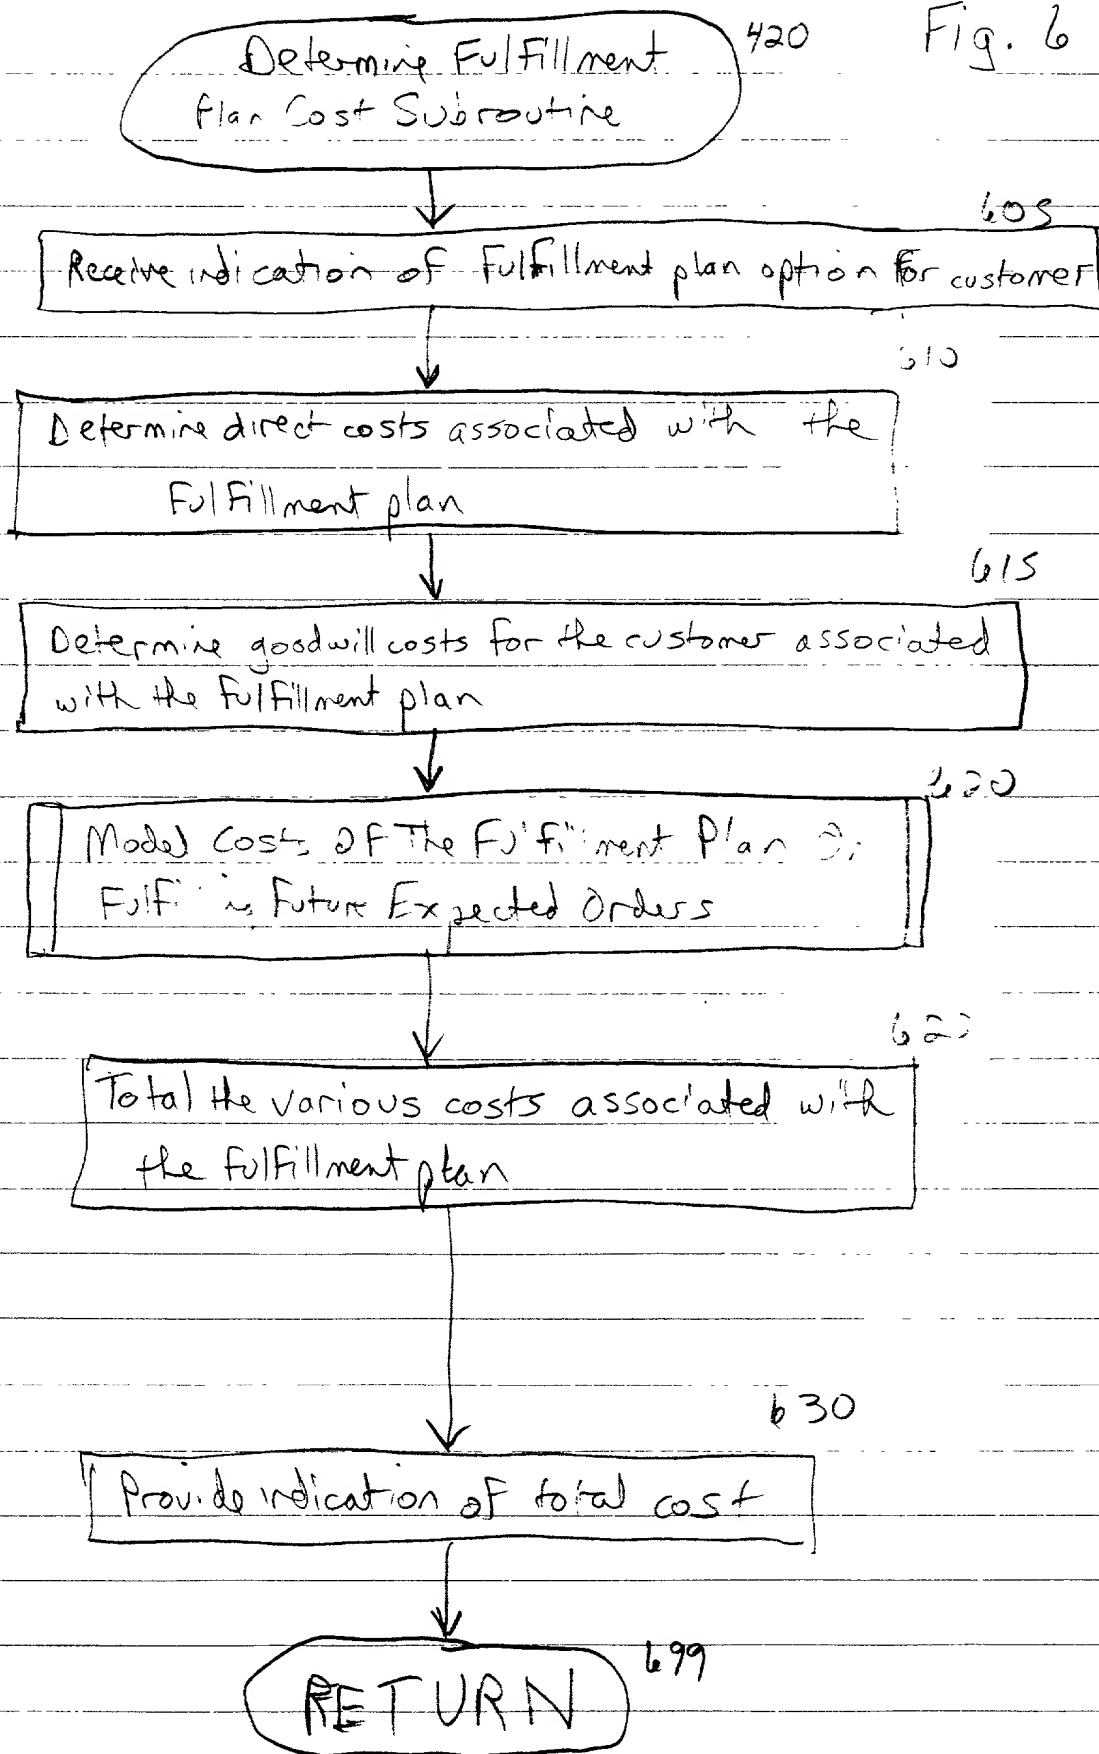 Fig. 6
420
Determine Fulfillment
Plan Cost Subroutine
605
Receive indication of Fulfillment plan option for customer
610
Determine direct costs associated with the
Fulfillment plan
615
Determine goodwill costs for the customer associated
with the Fulfillment plan
620
Model Costs of The Fulfillment Plan
Future Expected Orders
Total the various costs associated with
the fulfillment plan
630
Provide indication of total cost
699
RETURN